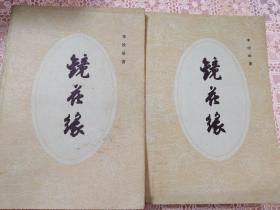 李汝珍著
镜花缘
李汝珍著
镜花缘